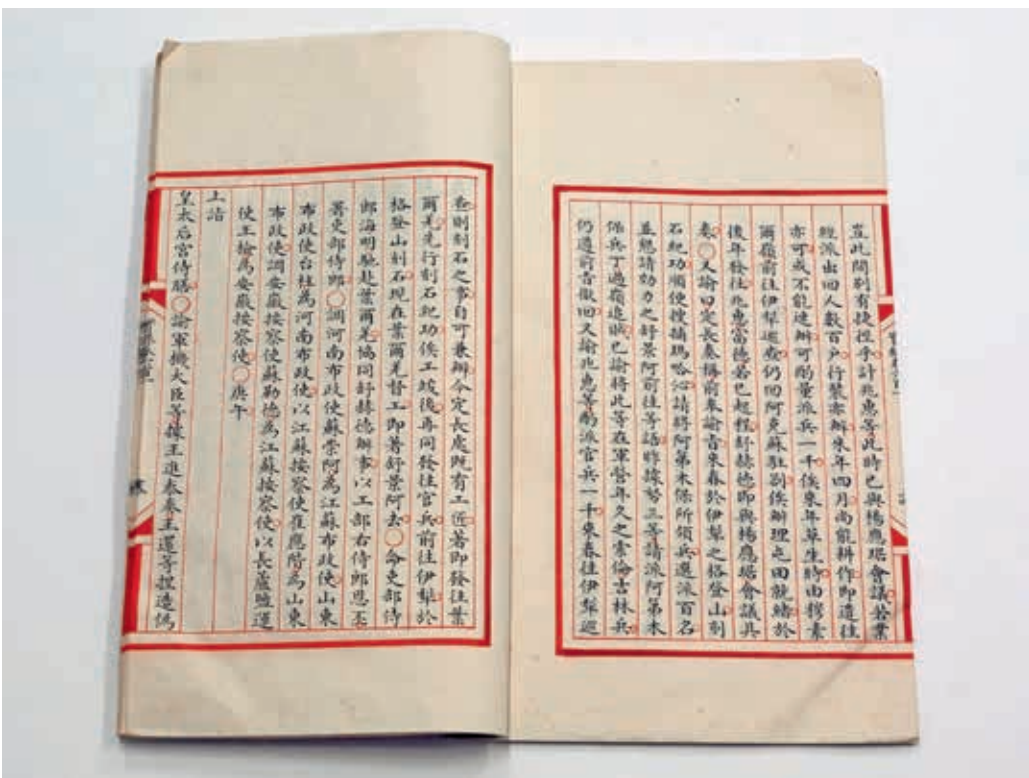 豈此間別有捷徑乎計兆惠等此時已與楊應琚會議若葉
經派出回人數百戶行裝亦辦來年四月尚能耕作即遣往
亦可或不能速辦可酌量派兵一千俟來年草生時由穆素
爾嶺前往伊犁巡查仍回阿克蘇駐劄俟辦理屯田就緒於
後年發往兆惠富德若已起程舒赫德即與楊應琚會議具
奏○又諭曰定長奏稱前奉諭旨來春於伊犁之格登山刻
石紀功順便搜捕瑪哈沁請將阿第木保所領兵選派百名
並懇請効力之舒景阿前往等語昨據努三等請派阿第木
保兵丁過嶺追
已諭將此等在軍營年久之索倫吉林兵
仍遵前旨徹回又諭兆惠等酌派官兵一千來春往伊犁巡
查則刻石之事自可兼辦今定長處既有工匠著即發往葉
爾羌先行刻石紀功俟工竣後再同發往官兵前往伊犁於
格登山刻石現在葉爾羌督工即著舒景阿去○命吏部侍
郎海明馳赴葉爾羌協同舒赫德辦事以工部右侍郎恩丕
署吏部侍郎○調河南布政使蘇崇阿為江蘇布政使山東
布政使台柱為河南布政使以江蘇按察使崔應階為山東
布政使調安徽按察使蘇勒德為江蘇按察使以長蘆鹽運
使王檢為安徽按察使○庚午
上詣
皇太后宮侍膳○諭軍機大臣等據王進泰奏王運等捏造偽